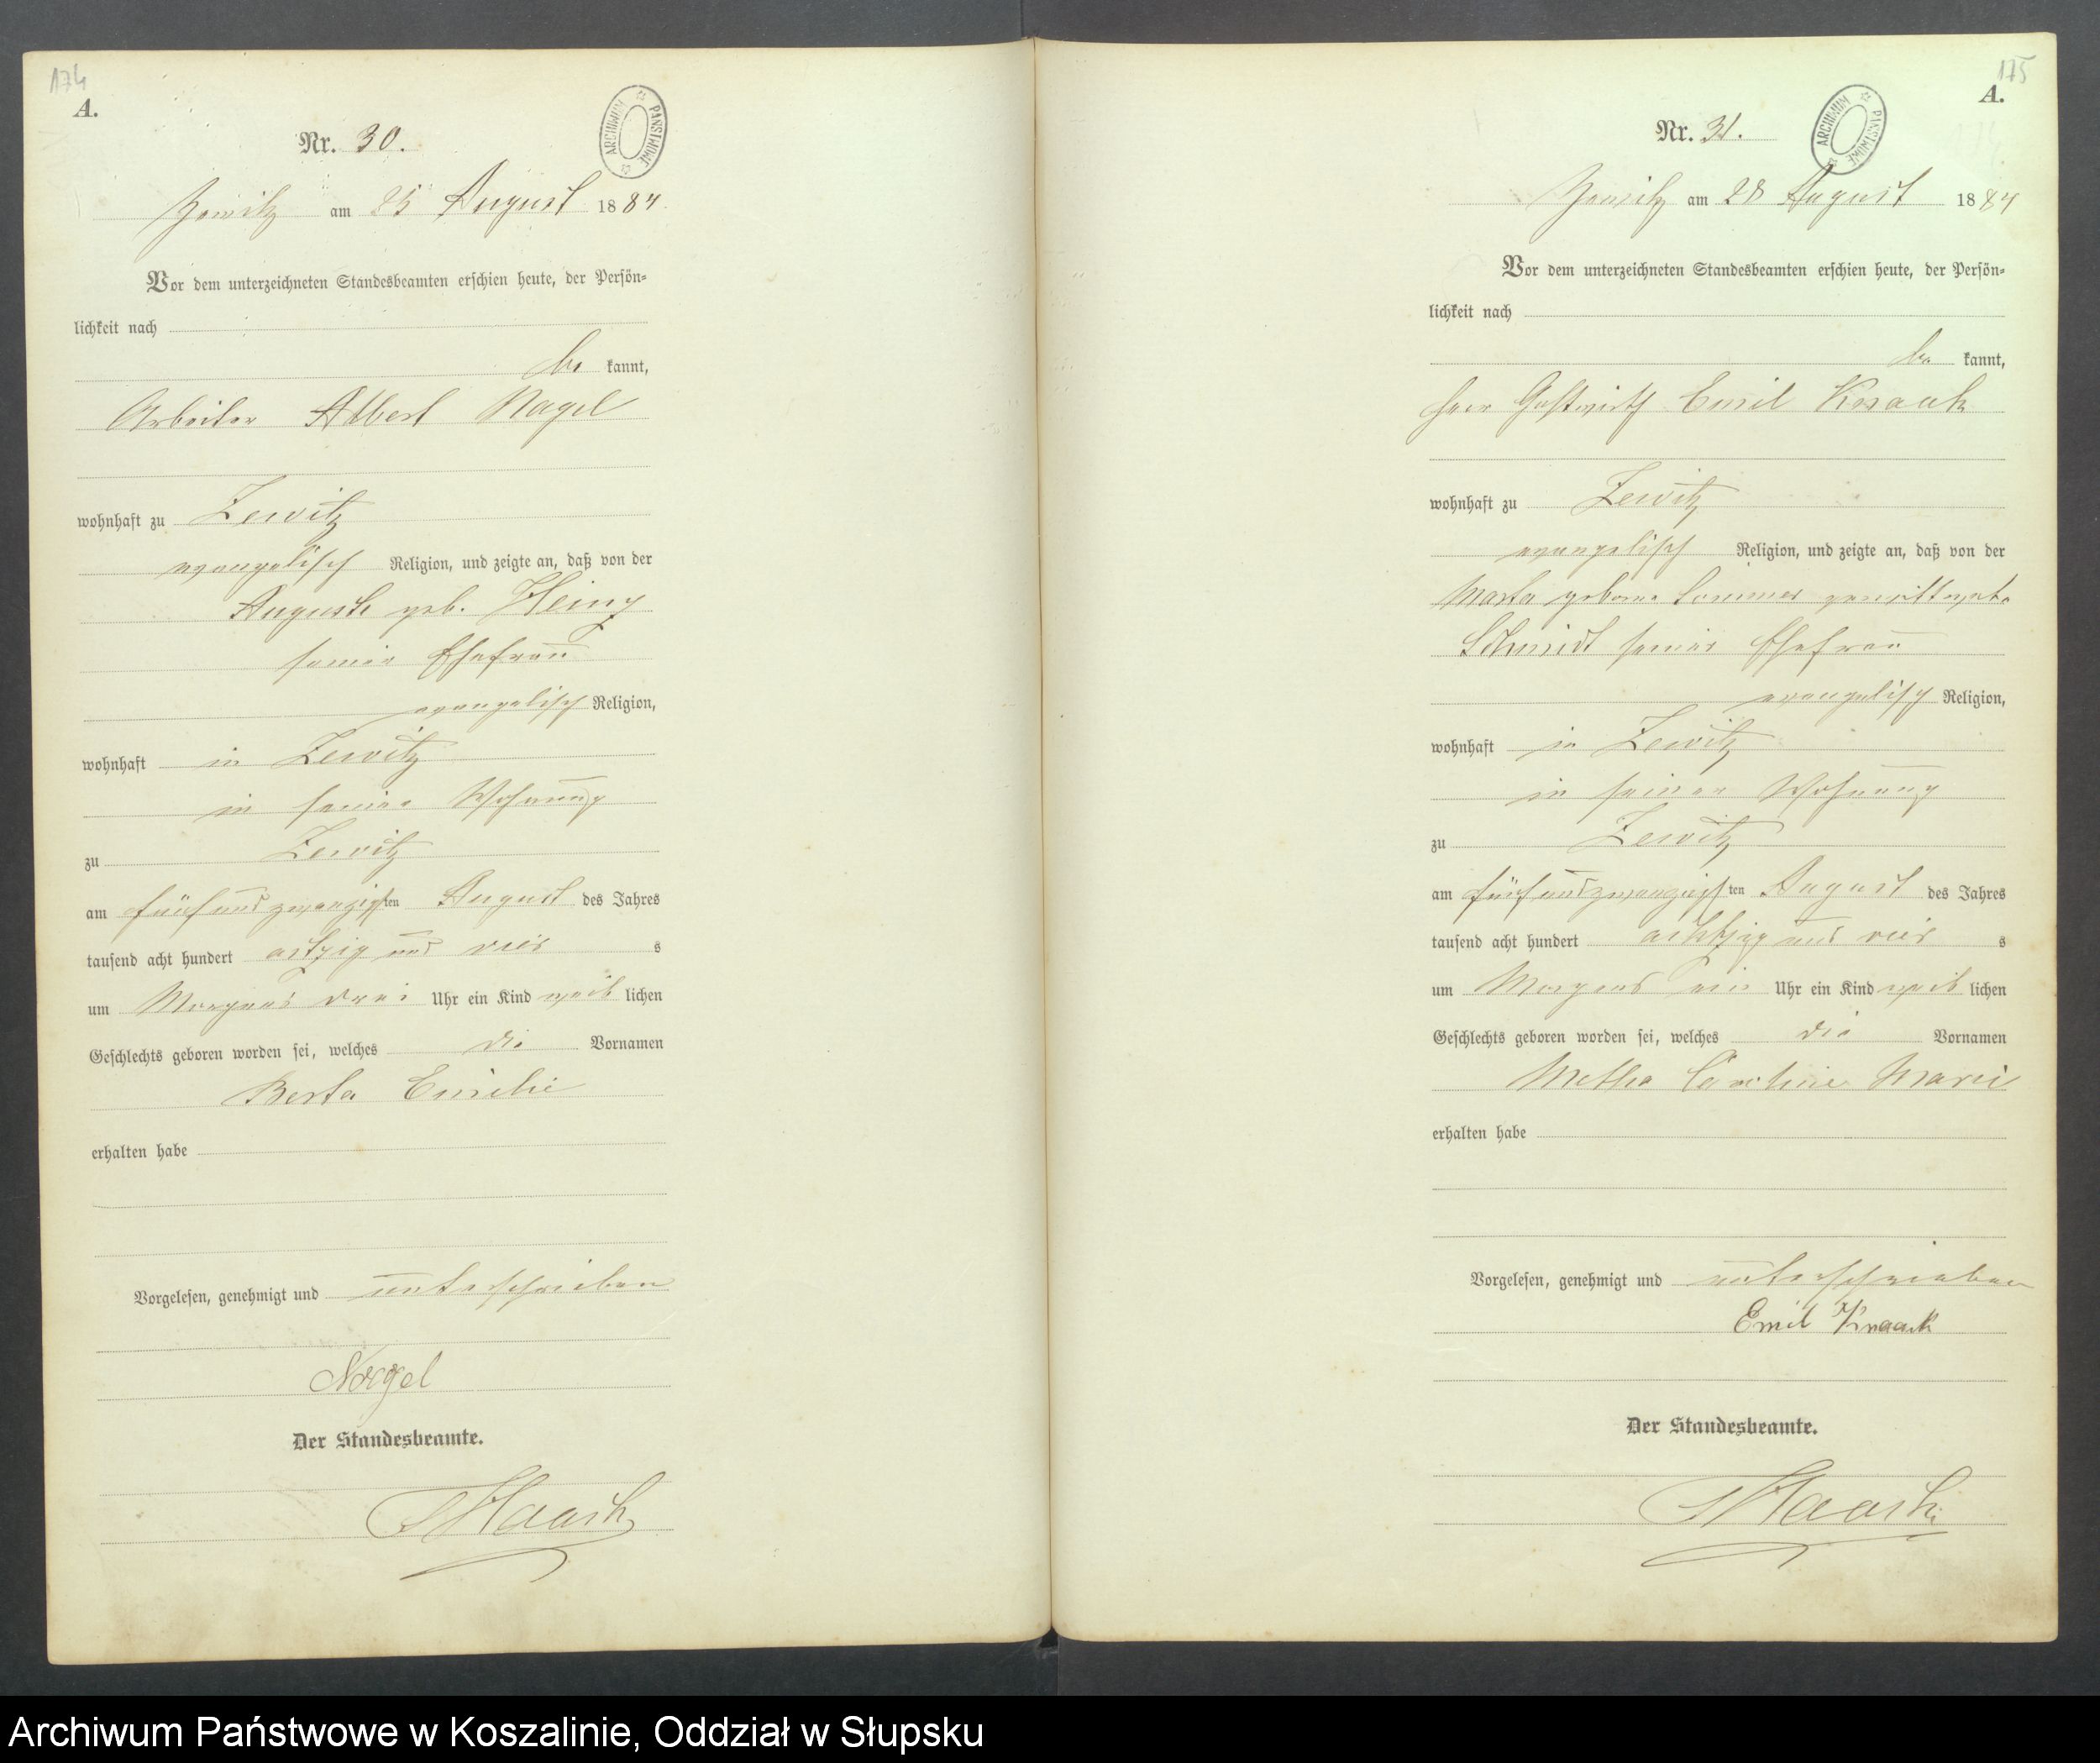 174
A.
Nr. 30.
ARCHIWUM PAŃSTWOWE
Zewitz am 25 August 1884
Vor dem unterzeichneten Standesbeamten erschien heute, der Persön-
lichkeit nach
be kannt,
Arbeiter Albert Nagel
wohnhaft zu Zewitz
evangelisch Religion, und zeigte an, daß von der
Auguste geb. Heinz
seiner Ehefrau
evangelisch Religion,
wohnhaft in Zewitz
in seiner Wohnung
zu Zewitz
am fünfundzwanzigsten August des Jahres
tausend acht hundert achtzig und vier s
um Morgens drei Uhr ein Kind weib lichen
Geschlechts geboren worden sei, welches die Vornamen
Berta Emilie
erhalten habe
Vorgelesen, genehmigt und unterschrieben
Nagel
Der Standesbeamte.
Haack
175
A.
Nr. 31.
ARCHIWUM PAŃSTWOWE
Zewitz am 28 August 1884
Vor dem unterzeichneten Standesbeamten erschien heute, der Persön-
lichkeit nach
be kannt,
Herr Gastwirth Emil Knaak
wohnhaft zu Zewitz
evangelisch Religion, und zeigte an, daß von der
Marta geborne Commer verwittwete
Schmidt seiner Ehefrau
evangelisch Religion,
wohnhaft in Zewitz
in seiner Wohnung
zu Zewitz
am fünfundzwanzigsten August des Jahres
tausend acht hundert achtzig und vier s
um Morgens ein Uhr ein Kind weib lichen
Geschlechts geboren worden sei, welches die Vornamen
Metha Caroline Marei
erhalten habe
Vorgelesen, genehmigt und unterschrieben
Emil Knaack
Der Standesbeamte.
Haack
Archiwum Państwowe w Koszalinie, Oddział w Słupsku